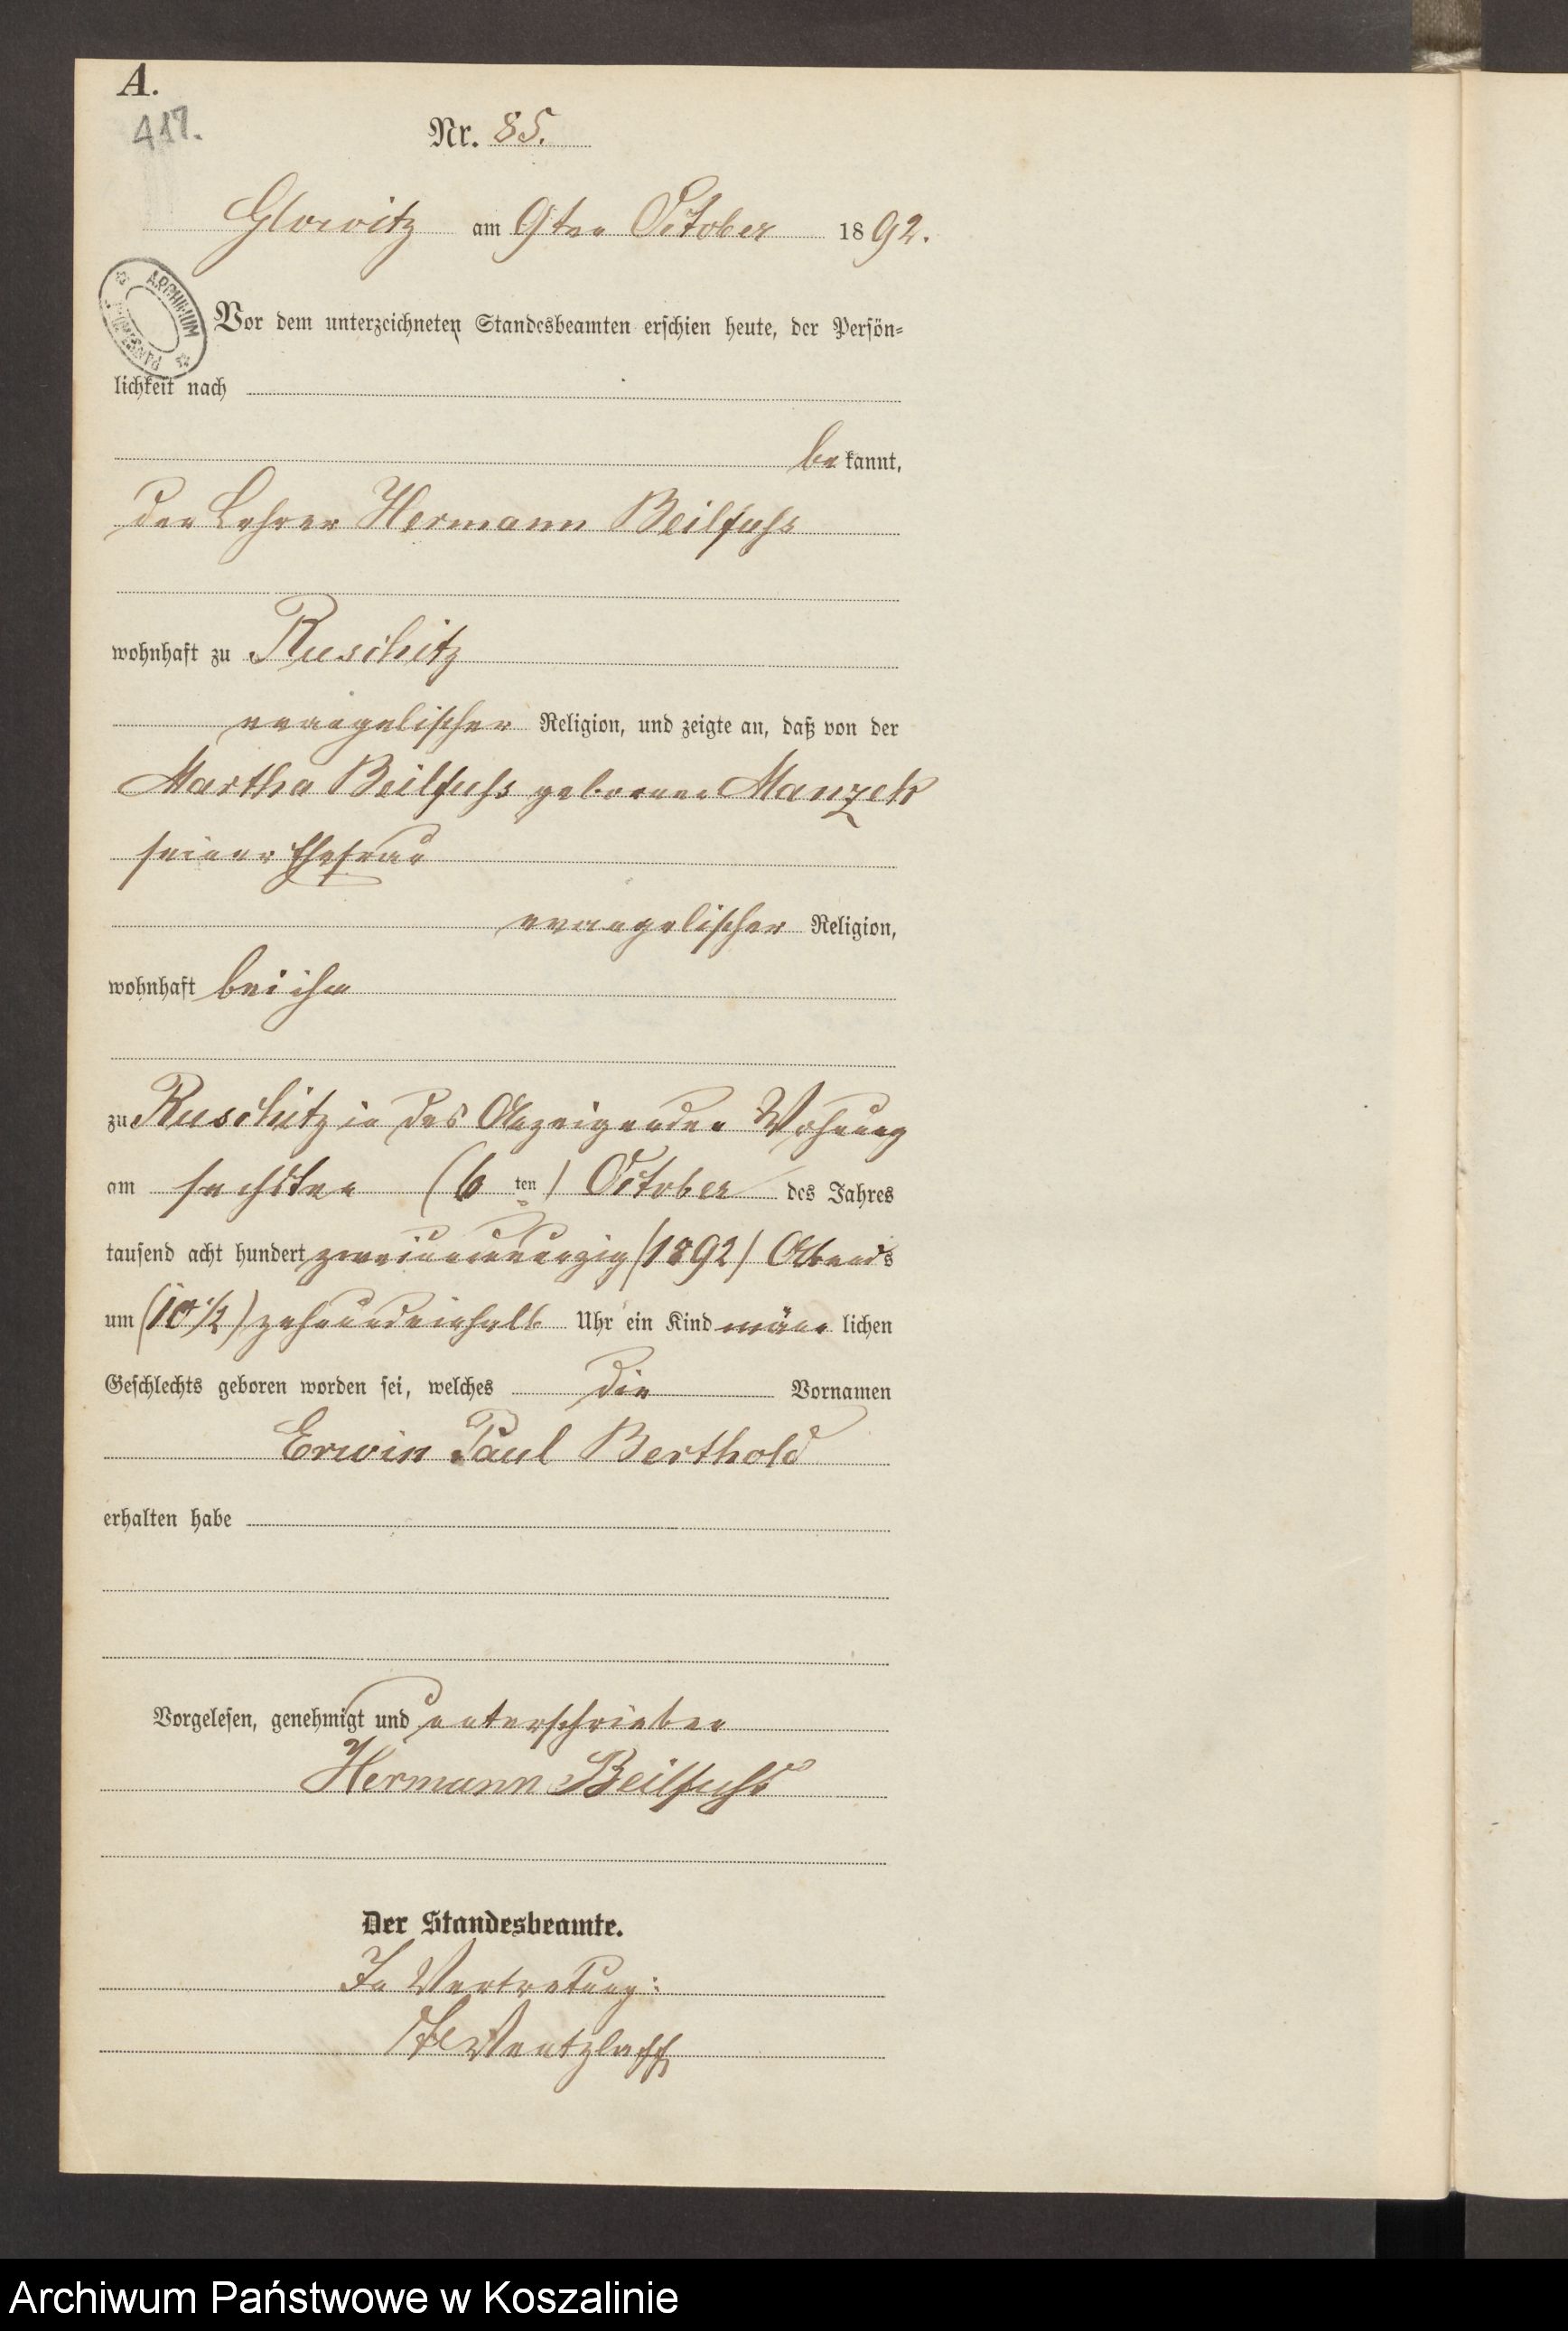 A.
417.
Nr. 85.
Glowitz am 9ten October 1892.
ARCHIWUM
Vor dem unterzeichneten Standesbeamten erschien heute, der Persön=
lichkeit nach
bekannt,
der Lehrer Hermann Beilfuhs
wohnhaft zu Ruschitz
evangelischer Religion, und zeigte an, daß von der
Martha Beilfuhs geborenen Manzek
seiner Ehefrau
evangelischer Religion,
wohnhaft bei ihm
zu Ruschitz in des Anzeigenden Wohnung
am sechsten (6 ten) October des Jahres
tausend acht hundert zweiundneunzig (1892) Abends
um (10 1/2) zehnundeinhalb Uhr ein Kind männlichen
Geschlechts geboren worden sei, welches die Vornamen
Erwin Paul Berthold
erhalten habe
Vorgelesen, genehmigt und unterschrieben
Hermann Beilfuhs
Der Standesbeamte.
In Vertretung:
Wentzlaff
Archiwum Państwowe w Koszalinie